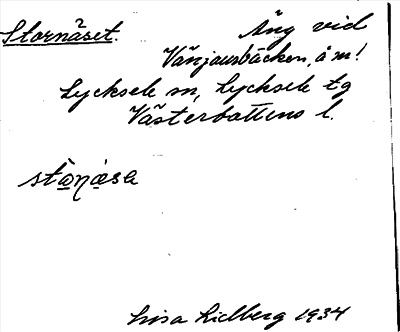 Stornäset.
Äng vid
Vänjausbäcken, å m!
Lycksele sn, Lycksele tg
Västerbottens l.
Lisa Lidberg 1934